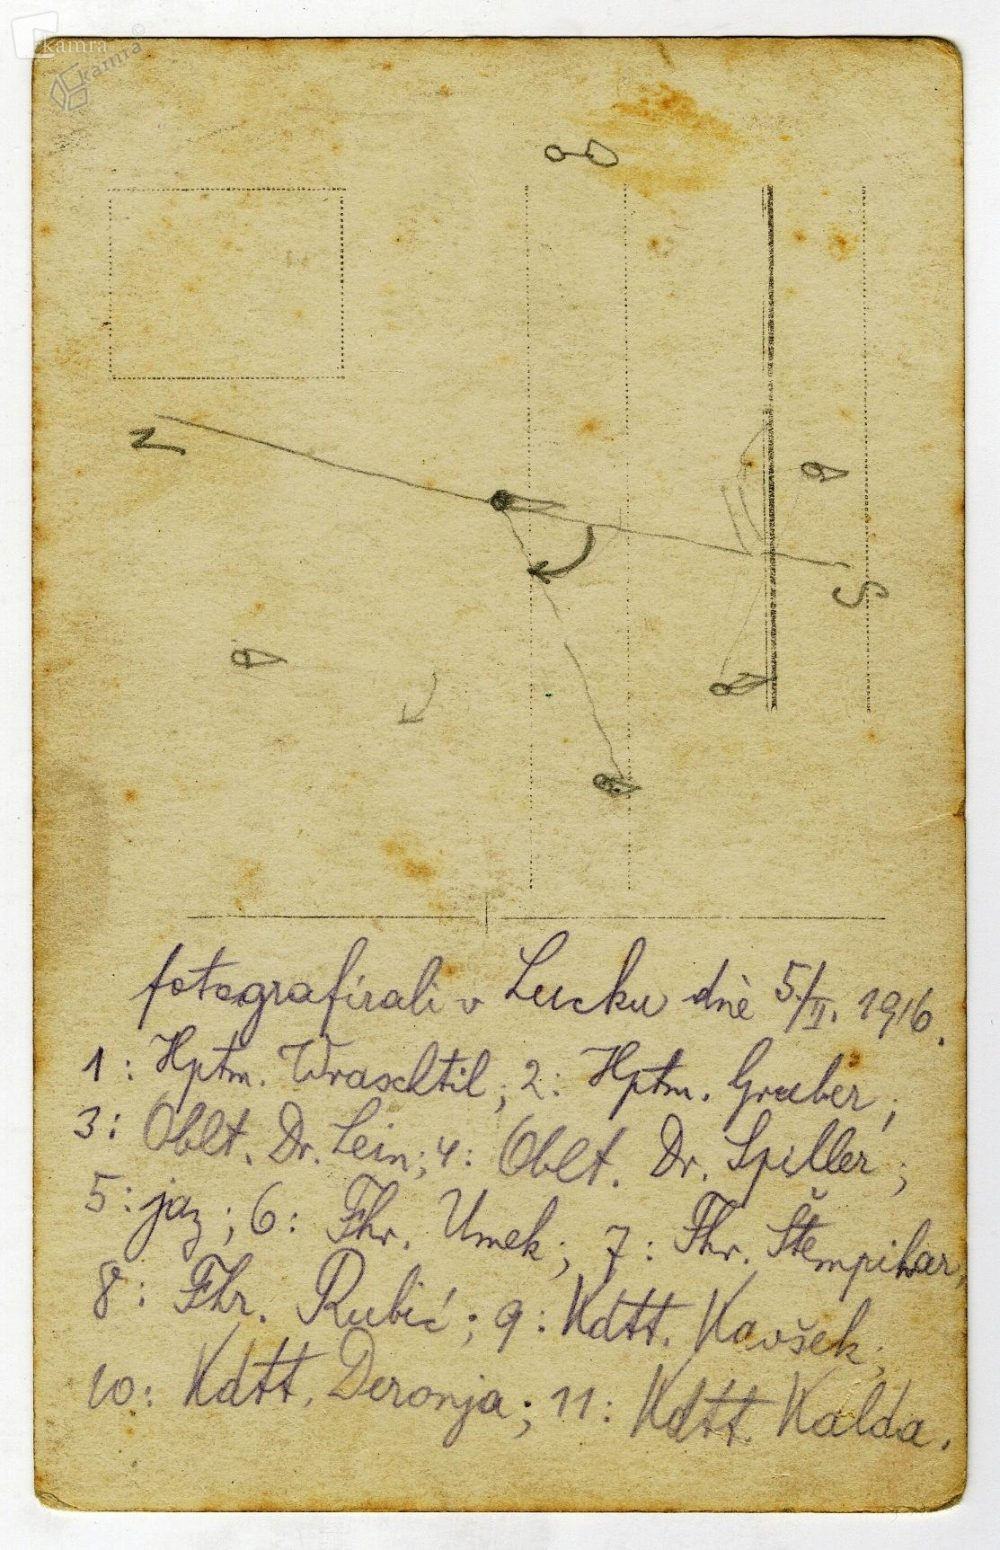 kamra
kamra
N
S
fotografirali v Lucku dnè 5/II. 1916.
1: Hptm. Wraschtil; 2: Hptm. Graber;
3: Oblt. Dr. Lein; 4: Oblt. Dr. Spiller;
5: jaz; 6: Fhr. Umek; 7: Fhr. Štempihar,
8: Fhr. Rubić; 9: Kdtt. Kavšek;
10: Kdtt. Deronja; 11: Kdtt. Kalda.